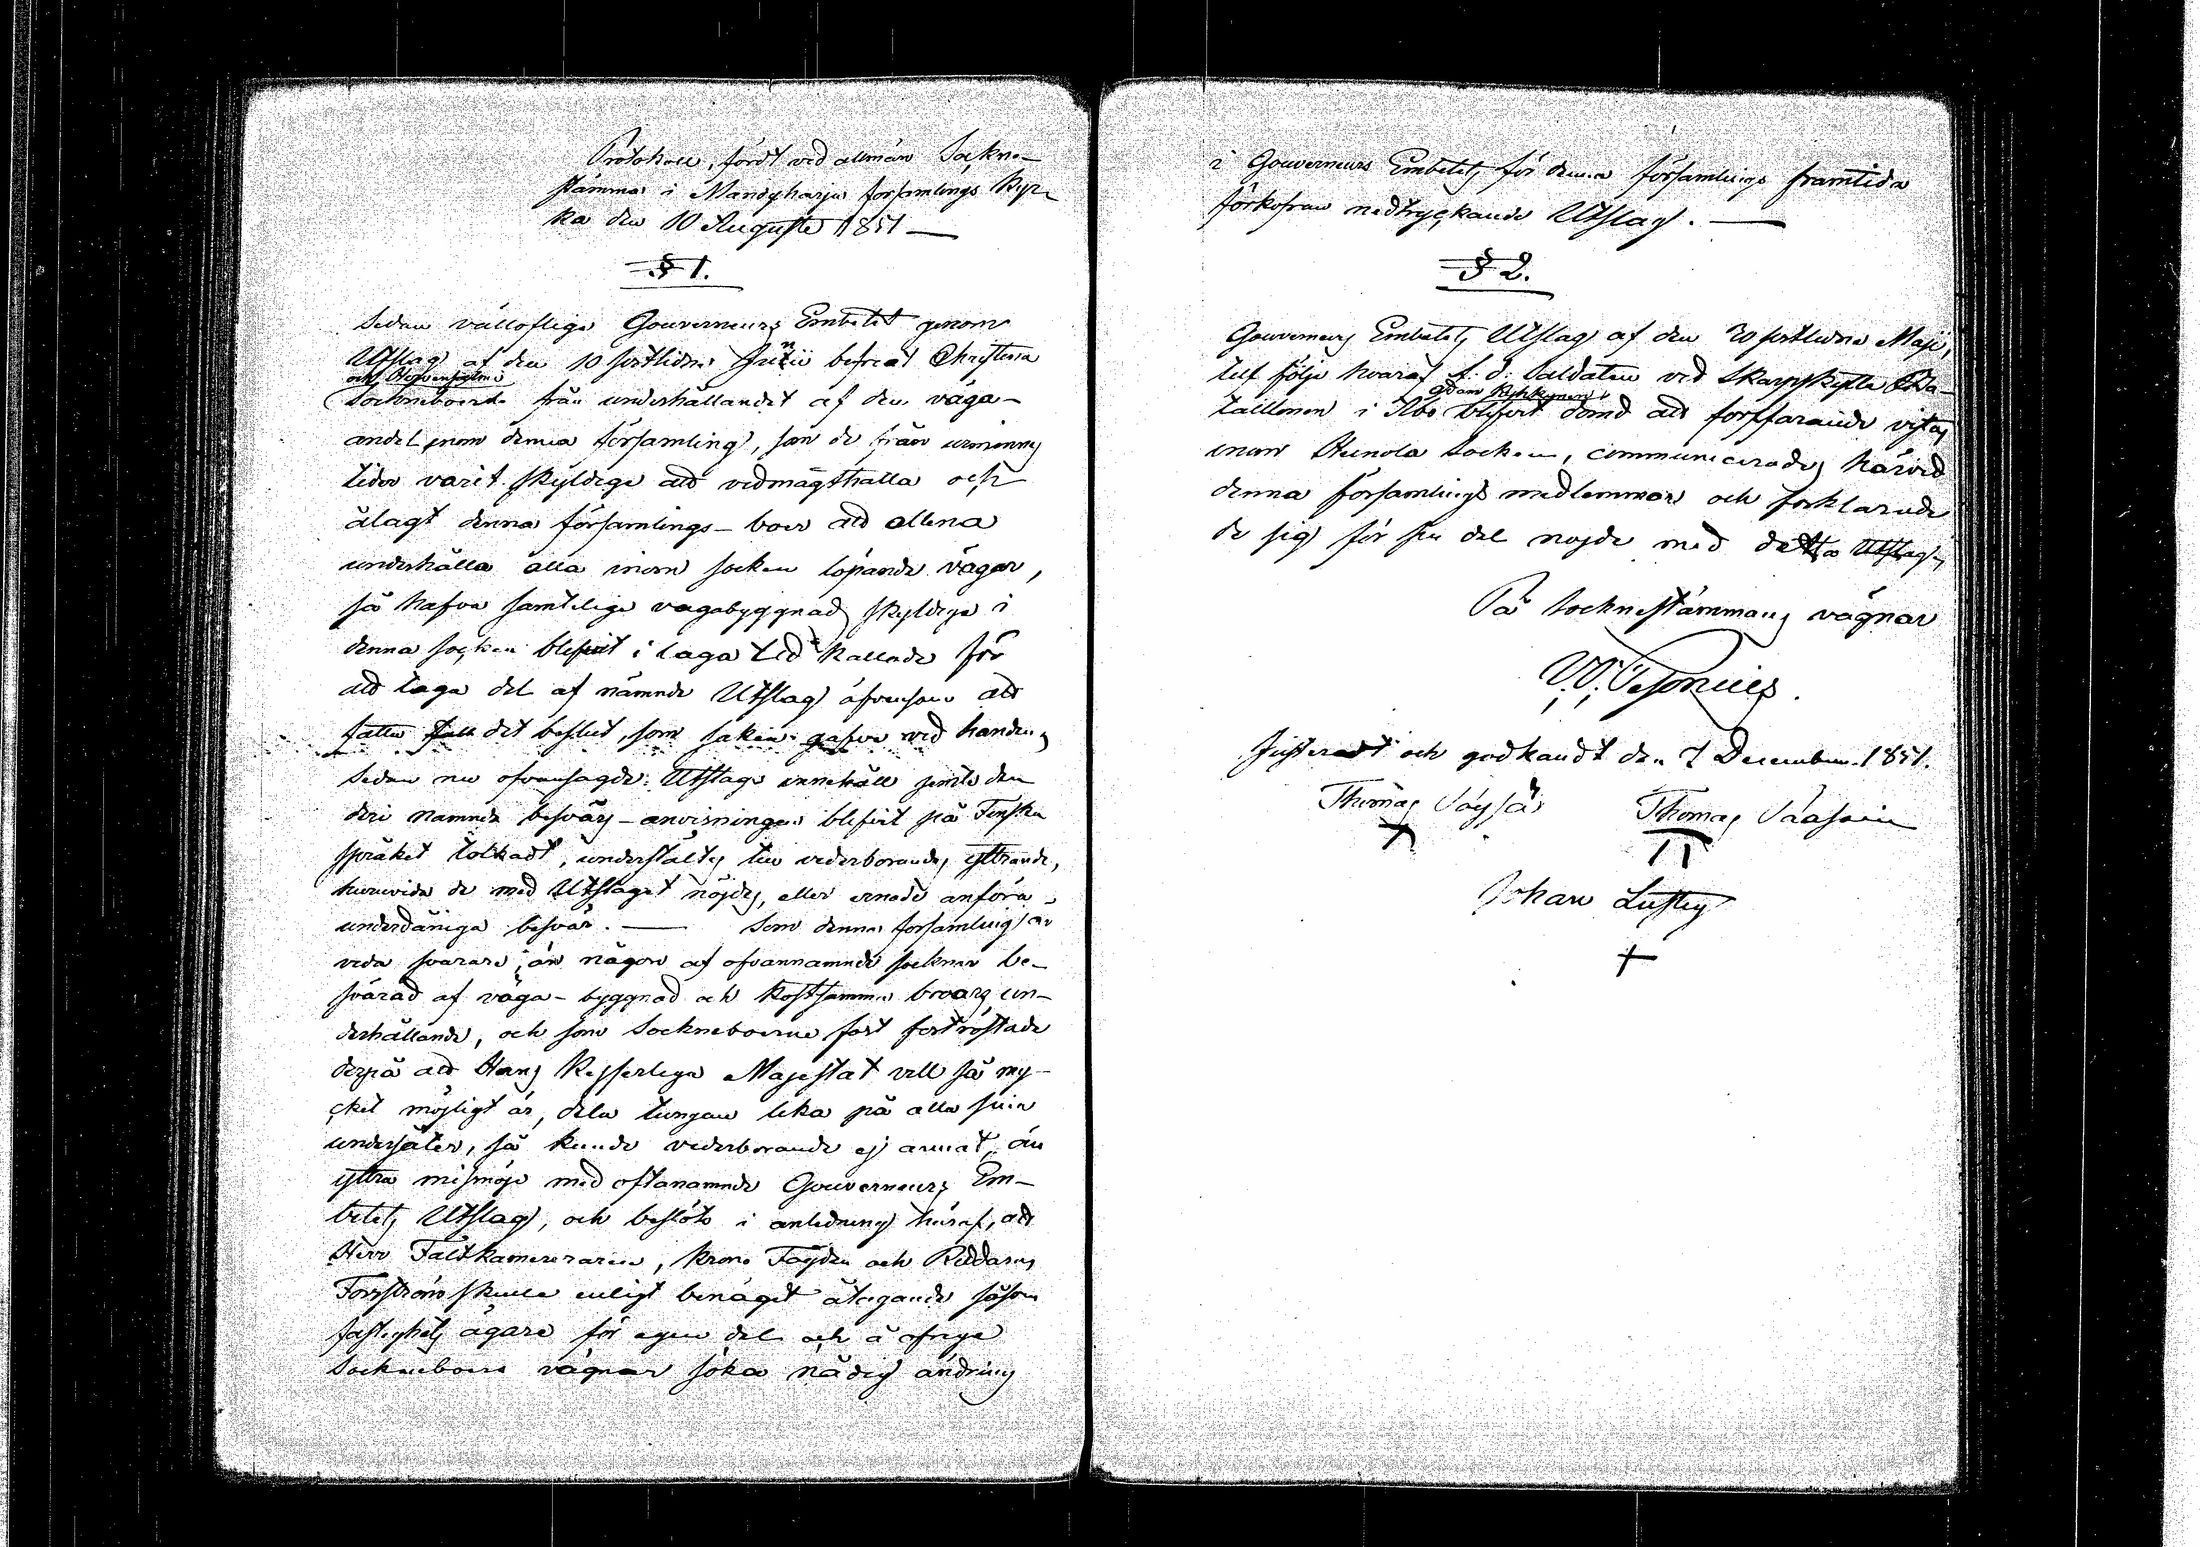 Protokoll, fördt vid allmän Sockne-
stämma i Mändyharju församlings Kyr-
ka den 10 Augusti 1851 —
§ 1.
Sedan vällofliga Gouverneurs Embetet genom
Utslag af den 10 sistlidne Junii befreat Christina
och
Sockneboerne från underhållandet af den väga-
andel inom denna församling, som de från urminnes
tider varit skyldige att vidmagthålla och
ålagt denna församlings-boer att allena
underhålla alla inom socken löpande vägar,
så hafva samtelige vägabyggnads skyldige i
denna socken blifvit i laga tid kallade för
att taga del af nämnde Utslag äfvensom att
fatta det beslut, som saken gafve vid handen,
Sedan nu ofvansagde Utslags innehåll jemte den
deri nämnda besvärs-anvisningen blifvit på Finska
språket tolkadt, underställtes till vederbörandes yttrande,
huruvida de med Utslaget nöjdes, eller ernade anföra
underdåniga besvär. — Som denna församling är
vida svårare, än någon af ofvannämnde socknar be-
svärad af väga-byggnad och kostsamma broars un-
derhållande, och som Sockneboerne fast förtröstade
derpå att Hans Kejserliga Majestät vill så my-
cket möjligt är, dela tungan lika på alla sina
undersåter, så kunde vederbörande ej annat, än
yttra missnöje med oftanämnde Gouverneurs Em-
betets Utslag, och beslöts i anledning häraf, att
Herr Fältkamereraren, Krono Fogden och Riddaren
Forsström skulle enligt benäget åtagande såsom
fastighets ägare för egen del och å öfrige
Sockneboers vägnar söka nådig ändring
i Gouverneurs Embetets för denna församlings framtida
förkofran nedtryckande Utslag. —
§ 2.
Gouverneurs Embetets Utslag af den 30 sistledne Maji,
till följe hvaraf f. d. Saldaten vid Skarpskytte Ba-
Adam
taillonen i Åbo blifvit dömd att fortfarande vistas
inom Heinola Socken, communicerades härvid
denna församlings medlemmar och förklarade
de sig för sin del nöjde med detta Utslag.
På Sockneståmmans vägnar
Justeradt och godkändt den 7 December 1851.
Thomas Thomas
Johan